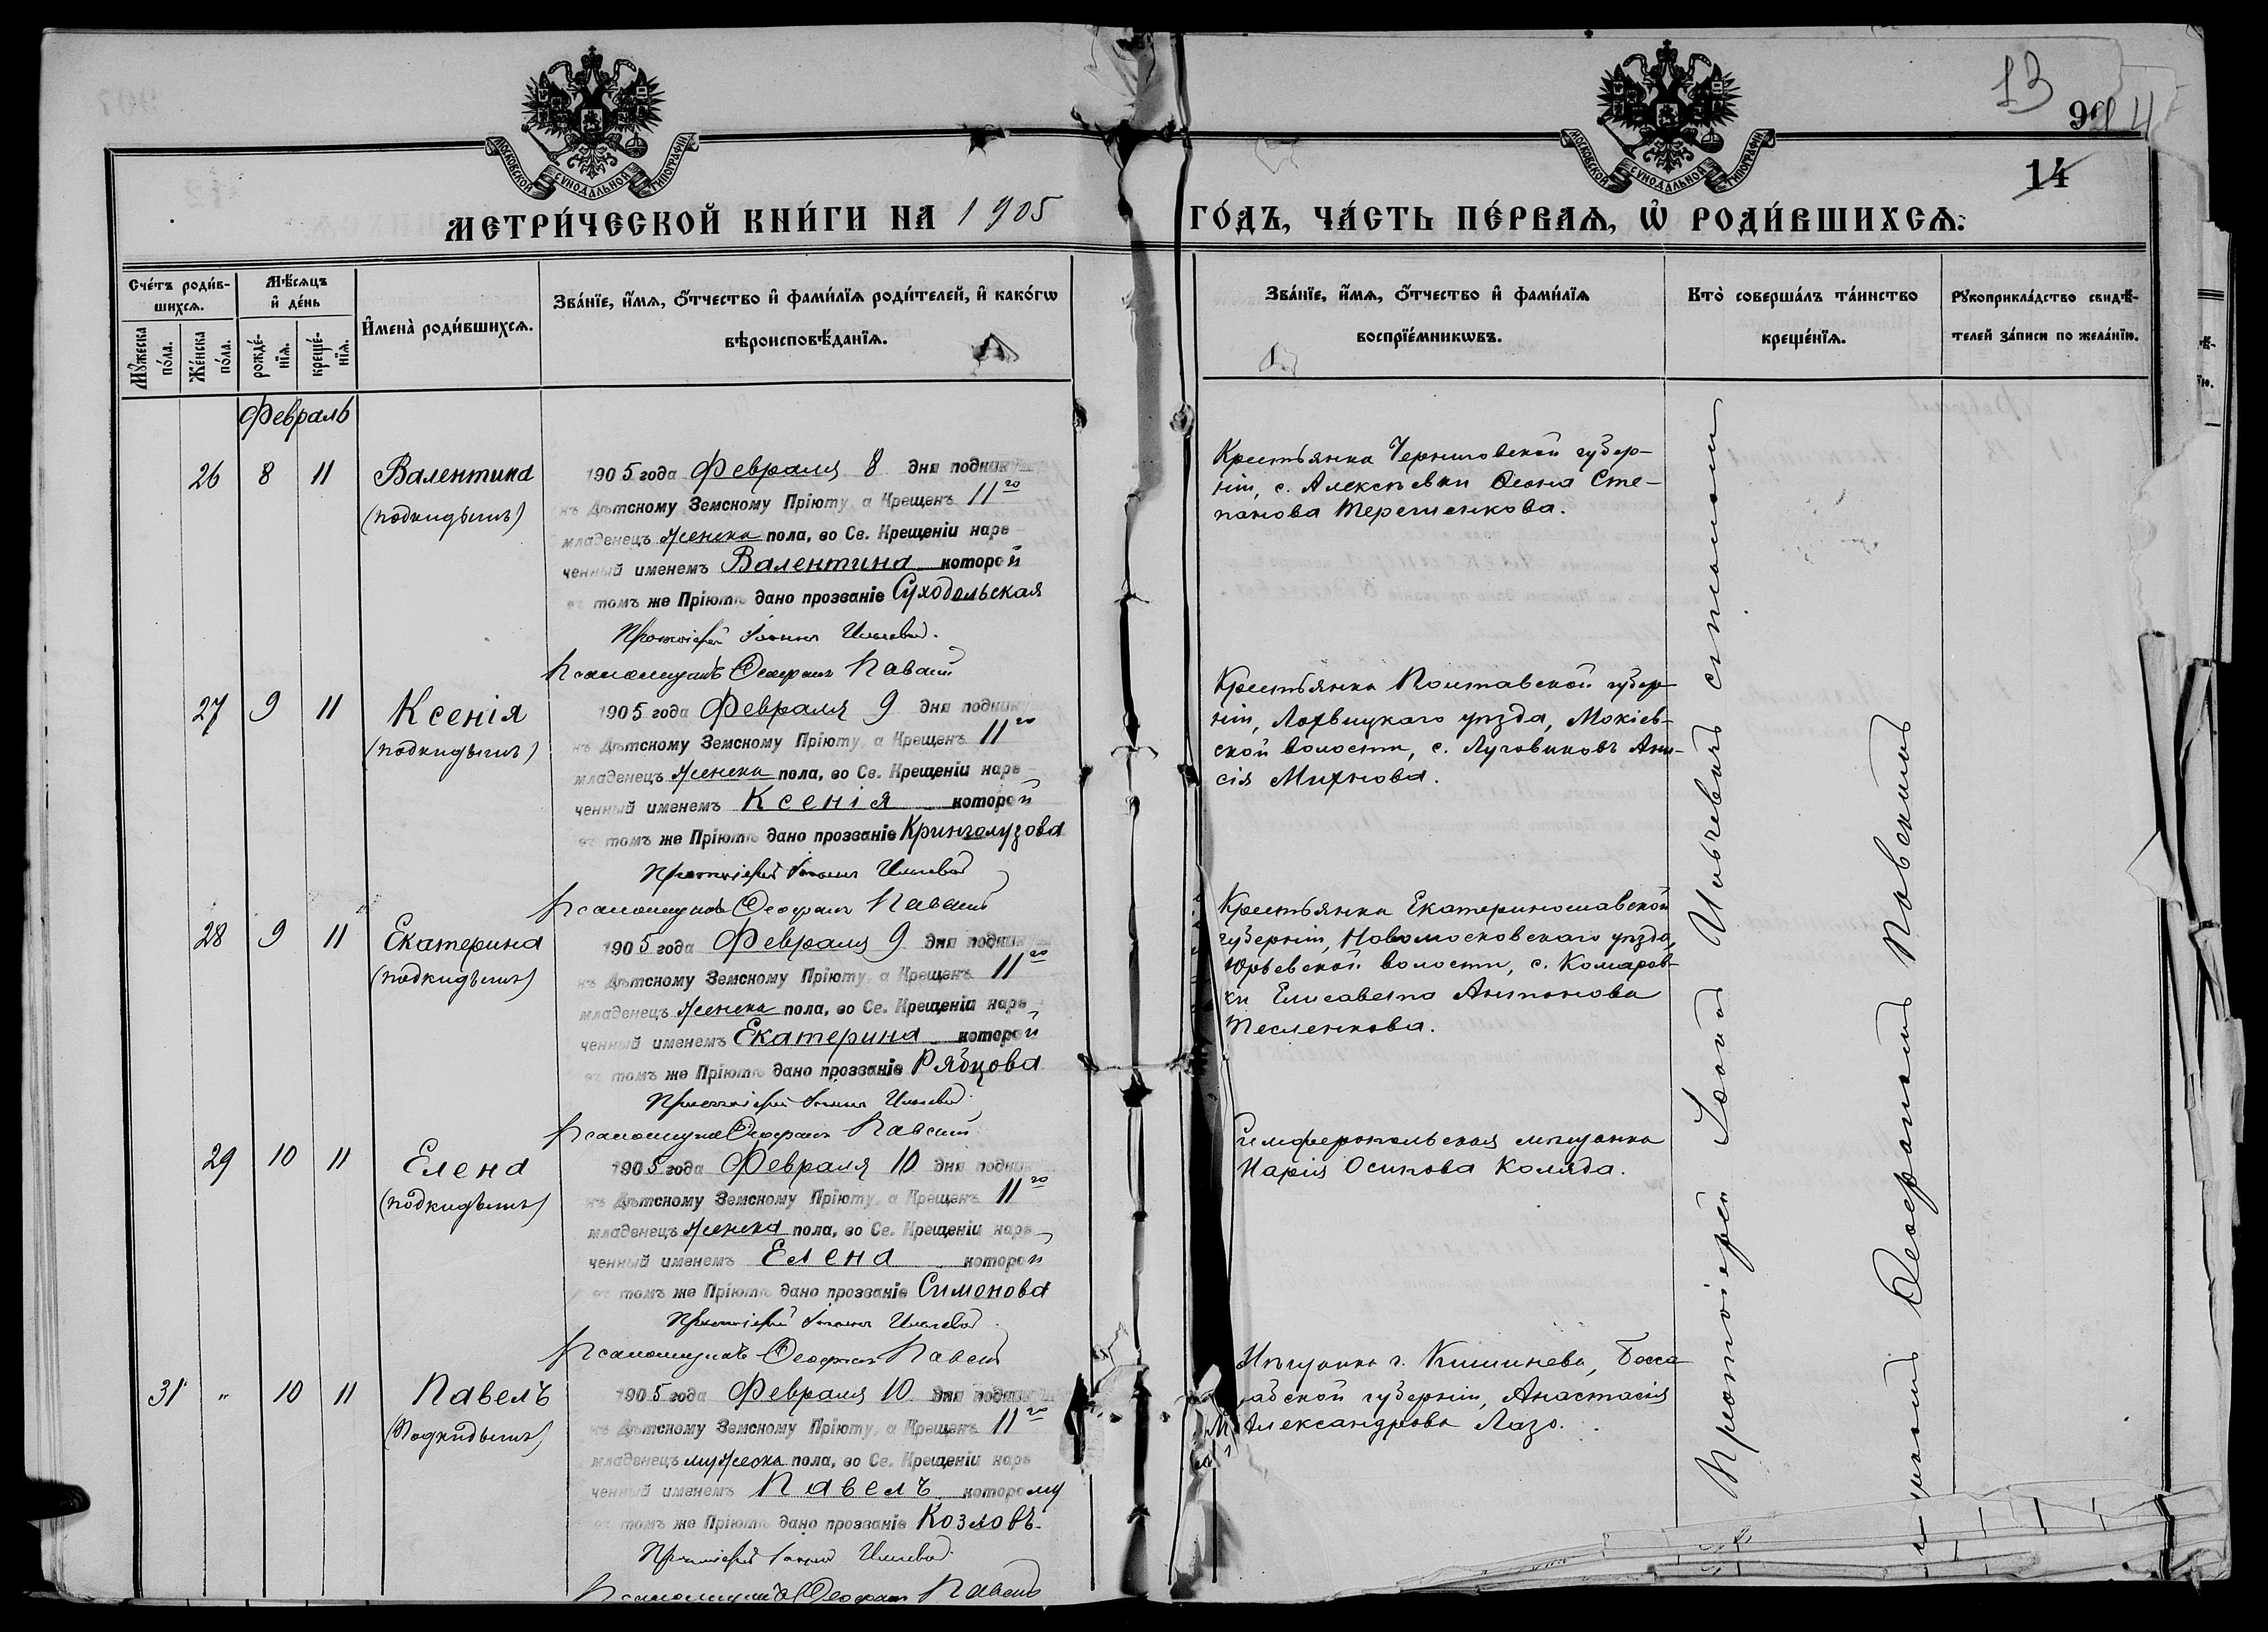 13
14
МОСКОВСКОЙ СѴНОДАЛЬНОЙ ТИПОГРАФІИ
МОСКОВСКОЙ СѴНОДАЛЬНОЙ ТИПОГРАФІИ
МЕТРИ́ЧЕСКОЙ КНИ́ГИ НА 1905 ГО́ДЪ, ЧА́СТЬ ПЕ́РВАѦ, Ѡ҆ РОДИ́ВШИХСѦ:
Сче́тъ роди́в-
шихсѧ.
Мꙋ́жеска по́ла.
Же́нска по́ла.
Мѣ́сѧцъ
и҆ де́нь
рожде́-
нїѧ.
креще́-
нїѧ.
И҆мена̀ роди́вшихсѧ.
Зва́нїе, и҆́мѧ, ѻ҆́тчество и҆ фами́лїѧ роди́телей, и҆ како́гѡ
вѣроисповѣ́данїѧ.
Зва́нїе, и҆́мѧ, ѻ҆́тчество и҆ фами́лїѧ
воспрїе́мникѡвъ.
Кто̀ соверша́лъ та́инство
креще́нїѧ.
Рꙋкоприкла́дство свидѣ́-
телей за́писи по жела́нїю.
Февраль
26 8 11 Валентина
(подкидышъ)
1905 года Февраля 8 дня подкинут
къ Дѣтскому Земскому Пріюту, а Крещенъ 11го
младенецъ женска пола, во Св. Крещеніи наре-
ченный именемъ Валентина которой
въ томъ же Пріютѣ дано прозваніе Суходольская
Протоіерей Іоаннъ
Псаломщикъ Ѳеофанъ
Крестьянка Черниговской губер-
ніи, с. Алексѣевки Ѳеона Сте-
панова Терешенкова.
27 9 11 Ксенія
(подкидышъ)
1905 года Февраля 9 дня подкинут
къ Дѣтскому Земскому Пріюту, а Крещенъ 11го
младенецъ женска пола, во Св. Крещеніи наре-
ченный именемъ Ксенія которой
въ томъ же Пріютѣ дано прозваніе Кринголузова
Протоіерей Іоаннъ
Псаломщикъ Ѳеофанъ
Крестьянка Полтавской губер-
ніи, Лохвицкаго уѣзда, Мокіев-
ской волости, с. Луговиковъ Ани-
сія Михнова.
28 9 11 Екатерина
(подкидышъ)
1905 года Февраля 9 дня подкинут
къ Дѣтскому Земскому Пріюту, а Крещенъ 11го
младенецъ женска пола, во Св. Крещеніи наре-
ченный именемъ Екатерина которой
въ томъ же Пріютѣ дано прозваніе Рябцова
Протоіерей Іоаннъ
Псаломщикъ Ѳеофанъ
Крестьянка Екатеринославской
губерніи, Новомосковскаго уѣзда,
Юрьевской волости, с. Комаров-
ки Елисавета Антонова
Тесленкова.
29 10 11 Елена
(подкидышъ)
1905 года Февраля 10 дня подкинут
къ Дѣтскому Земскому Пріюту, а Крещенъ 11го
младенецъ женска пола, во Св. Крещеніи наре-
ченный именемъ Елена которой
въ томъ же Пріютѣ дано прозваніе Симонова
Протоіерей Іоаннъ
Псаломщикъ Ѳеофанъ
Симферопольская мѣщанка
Марія Осипова Коляда.
31 " 10 11 Павелъ
(Подкидышъ)
1905 года Февраля 10 дня подкинут
къ Дѣтскому Земскому Пріюту, а Крещенъ 11го
младенецъ мужеска пола, во Св. Крещеніи наре-
ченный именемъ Павелъ которому
въ томъ же Пріютѣ дано прозваніе Козловъ.
Протоіерей Іоаннъ
Псаломщикъ Ѳеофанъ
Мѣщанка г. Кишинева, Бесса
рабской губерніи, Анастасія
Александрова Лазо.
Протоіерей Іоаннъ съ псаломщ